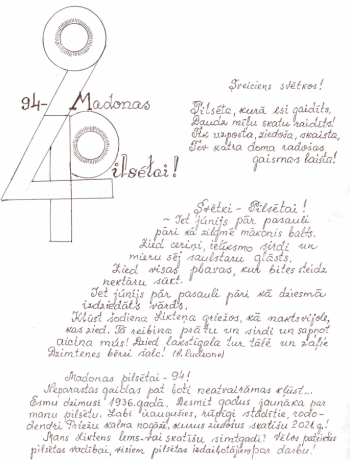 Sveiciens svētkos!
94-Madonas
pilsētai!
Pilsēta, kurā esi gaidīts,
Daudz mīļu skatu raidīts!
Tik uzposta, ziedoša, skaista,
Tev katra doma radošas
gaismas laista!
Svētki - Pilsētai!
- Iet jūnijs pār pasauli
pāri kā zilgmē mākonis balts.
Zied ceriņi, ielīksmo sirdi un
mieru sēj saulstaru glāsts.
Zied visas pļavas, kur bites steidz
nektāru sūkt.
Iet jūnijs pār pasauli pāri kā dziesmā
izdziedāts vārds.
Kļūst šodiena Likteņa griezos, kā naktsvijole,
kas zied. Tā reibina prātu un sirdi un sapņot
aicina mūs! Dzied lakstīgala tur tālē un zaļie
Dzimtenes bērzi šalc!
Madonas pilsētai - 94!
Neparastas gaidas pat ļoti neatvairāmas kļūst...
Esmu dzimusi 1936. gadā. Desmit gadus jaunāka par
manu pilsētu. Labi izaugusies, rūpīgi stādītie, rodo-
dendri Priežu kalna nogāzē, kurus ziedošus skatīšu 2020g!
Mans Liktenis lems-vai skatīšu simtgadi! Vēlos pateikties
pilsētas vadībai, visiem, pilsētas izdaiļotājiem par darbu!